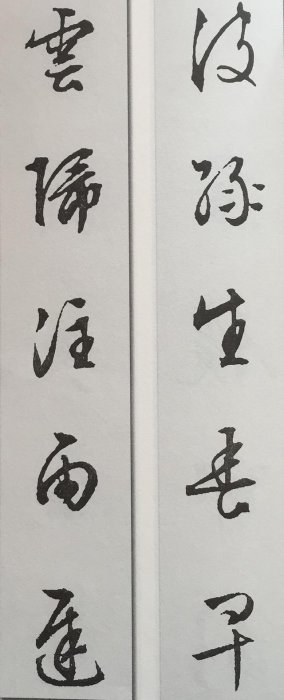 波緑生春早
雲歸注雨遲